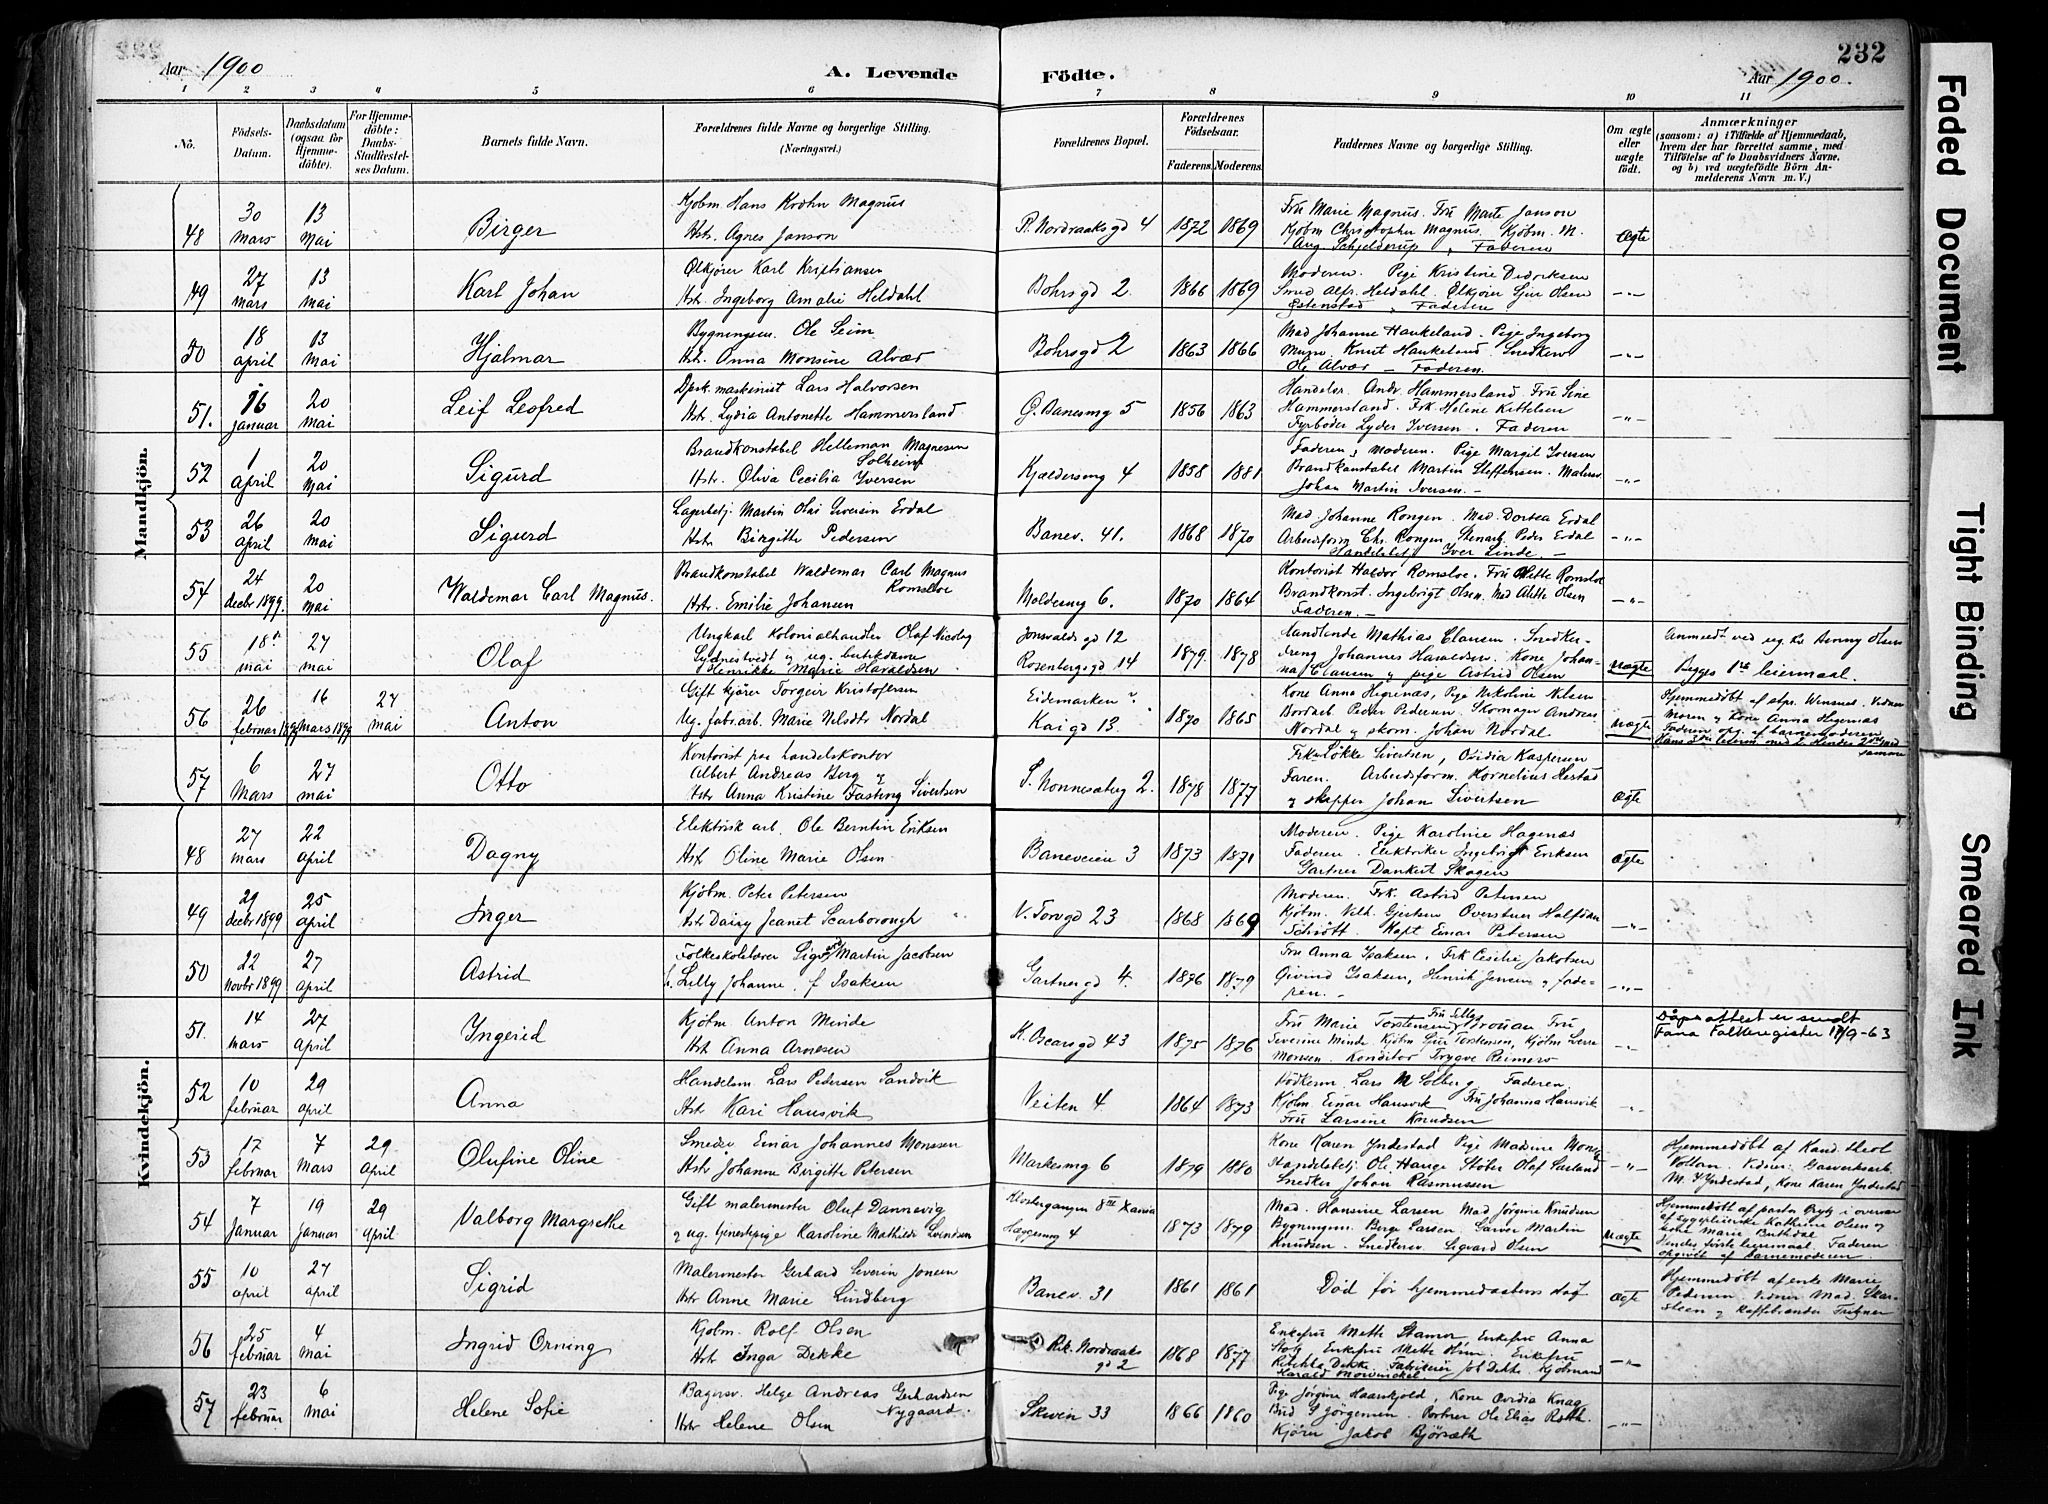 232
Aar 1900 A. Levende Födte. Aar 1900.
1 2 3 4 5 6 7 8 9 10 11
Nô. Födsels-Datum. Daabsdatum (ogsaa för Hjemmedöbte). For Hjemmedöbte: Daabs-Stadfæstelses Datum. Barnets fulde Navn. Forældrenes fulde Navne og borgerlige Stilling. (Næringsvei.) Forældrenes Bopæl. Forældrenes Födselsaar. Faderens. Moderens. Faddernes Navne og borgerlige Stilling. Om ægte eller uægte födt. Anmærkninger (saasom: a) i Tilfælde af Hjemmedaab, hvem der har forrettet samme, med Tilföielse af to Daabsvidners Navne. og b) ved uægtefödte Börn Anmelderens Navn m. V.)
Mandkjön.
48 30 Mars 13 Mai Birger Kjøbm. Hans Krohn Magnus Hstr. Agnes Janson R. Nordraaksgd 4 1872 1869 Fru Marie Magnus. Fru Marte Janson Kjøbm Christopher Magnus. Kjøbm. M. Aug. Schjelderup, Faderen Ægte
49 27 mars 13 mai Karl Johan Ølkjører Karl Kristiansen Hstr. Ingeborg Amalie Heldahl Bohrsgd 2. 1866 1869 Moderen. Pige Kristine Didriksen Smed Alfr. Heldahl. Ølkjører Sjur Olsen Faderen -"-
50 18 april 13 Mai Hjalmar Ole Seim Hstr. Anna Monsine Alvær Bohrsgd 2 1863 1866 Mad Johanne Haukeland. Pige Ingeborg Knut Haukeland. Snedkersv Ole Alvær - Faderen. -"-
51. 16 januar 20 mai Leif Leofred Dpsk. maskinist Lars Halvorsen Hstr. Lydia Antonette Hammersland. G. Banesmg 5 1856 1863 Handelsr. Andr. Hammersland. Fru Sine Hammersland. Frk. Helene Kittelsen Fyrbøder Lyder Iversen. Faderen -"-
52 1 april 20 Mai Sigurd Brandkonstabel Helleman Magnesen Solheim Hstr. Oliva Cecilia Yversen Kjeldersmg 4 1858 1881 Faderen, Moderen. Pige Margit Iversen Brandkonstabel Martin Steffensen. Malersv. Johan Martin Iversen. -"-
53 26 april 20 mai Sigurd Lagerbetj. Martin Olai Erdal Hstr Birgitte Pedersen Banev. 41. 1868 1870 Mad Johanne Rongen. Mad. Dortea Erdal Arbeidsform Chr. Rongen Stenarb. Peder Erdal Handelsbetj Iver Linde. -"-
54 24 decbr 1899. 20 Mai Waldemar Carl Magnus. Brandkonstabel Waldemar Carl Magnus Romsloe Hstr. Emilie Johansen Moldersmg 6. 1870 1864 Kontorist Haldor Romsloe. Fru Mette Romsloe Brandkonst. Ingebrigt Olsen. Mad Alette Olsen Faderen. -"-
55 18 mai 27 mai Olaf Ungkarl Kolonialhandler Olaf Nicolay Sydnestvedt og ug. butikdame Henrikke Marie Haraldsen Jonsvoldsgd 12 Rosenbergsgd 14 1879. 1878 Handlende Mathias Clausen. Snedkerdreng Johannes Haraldsen. Kone Johanna Clausen og pige Astrid Olsen Uægte Anmeldt ved ug. Kv Henny Olsen Begges 1ste leiermaal.
56 26 februar 1899 16 Mars 1899 27 mai Anton Gift kjører Torgeir Kristofersen Ug. fabr.arb. Marie Nilsdtr Nordal Eidemarken? Kaigd 13. 1870 1865 Kone Anna Hegrenæs, Pige Nikoline Nilsen Bordarb Peder Pedersen. Skomager Andreas Nordal og skom. Johan Nordal. Uægte Hjemmedøbt af stpr. Vidner Moren og Kone Anna Hegernæs Faderen opg. af barnemoderen samme
57 6 Mars 27 mai Otto Kontorist paa handelskontor Albert Andreas Berg og Hstr Anna Kristine Fasting Sivertsen S. Nonnesæterg 2. 1878 1877 Frk Løkke Sivertsen, Ovidia Kaspersen Faren. Arbeidsform. Kornelius og skipper Johan Sivertsen Ægte
Kvindekjön.
48 27 mars 22 april Dagny Elektrisk arb. Ole Berntin Eriksen Hstr Oline Marie Olsen Baneveien 3 1873 1871 Moderen. Pige Karoline Hagenæs Faderen. Elektriker Ingebrigt Eriksen Gartner Dankert Skagen Ægte
49 29 decbr 1899 25 april Inger Kjøbm. Peter Petersen Hstr Daisy Jeanet Scarborough V. Torvgd 23 1868 1869 Moderen. Frk. Astrid Petersen Kjøbm. Vilh. Gjertsen Halfdan Kapt Einar Petersen -"-
50 22 novbr 1899 27 april Astrid Folkeskolelærer Sigurd Martin Jacobsen h. Lilly Johanne f Isaksen Gartnergd 4. 1876 1879 Fru Anna Isaksen. Frk Cecilie Jakobsen Øivind Isaksen, Henrik Jensen og faderen. -"-
51. 14 mars 27 April Yngerid Kjøbm. Anton Minde Hstr Anna Arnesen K. Oscarsgd 43 1875 1876 Fru Marie Torstensen Fru Severine Minde Kjøbm Sjur Torstensen, Kjøbm Monsen. Konditor Trygve Reimers -"- Dåpsattest er sendt Fana Folkeregister 17/9-63
52 10 februar 29 april Anna Handelsm. Lars Pedersen Sandvik Hstr Kari Hausvik Veiten 4 1864 1873 Lars M Solberg Faderen. Kjøbm Einar Hausvik Fru Johanna Hausvik Fru Larsine Knudsen -"-
53 17 februar 7 Mars 29 April Olufine Oline Smedsv Einar Johannes Monssen Hstr Johanne Birgitte Petersen Markesmg 6 1879 1880 Kone Karen Yndestad Pige Madsine Handelsbetj Ole Hauge Støber Olaf Snedker Johan Rasmussen -"- Hjemmedøbt af Kand. theol Voltom. Vidner: Gasverksarb. M. Yndestad, Kone Karen Yndestad
54 7 Januar 19 Januar 29 April Valborg Margrethe Gift malermester Oluf Dannevig og ug. tjenestepige Karoline Mathilde Svendsen Klostergangen 8 III Xania Hæggesmg 4 1873 1879 Mad. Hansine Larsen Mad Jørgine Knudsen Bygningsm. Berge Larsen Garver Martin Knudsen. Snedkersv. Sigvard Olsen Uægte Hjemmedøbt af pastor i overvær af sygepleierske Kathrine Olsen og Marie Hendes første leiermaal. Faderen opgivet af barnemoderen.
55 10 april 27 april Sigrid Malermester Gerhard Severin Jensen Hstr Anne Marie Lindberg Banev. 31 1861 1861 Død før hjemmedaabens stadf Ægte Hjemmedøbt af enke Marie Pedersen. Vidner Mad. Skarsteen og Kaffebrænder
56 25 februar 4 Mai Ingrid Orning Kjøbm. Rolf Olsen Hstr Inga Dekke Rik. Nordraaks gd 2 1868 1877 Enkefru Mette Stamer Enkefru Anna Stolz Enkefru Mette Enkefru Rebekka Dekke. Fabrikeier Joh Dekke, Kjøbmand Harald Mowinckel -"-
57 23 februar 6 Mai Helene Sofie Bagersv. Helge Andreas Gerhardsen Nygaard. Hstr Helene Olsen Skivein 33 1866 1860 Pige Jørgine Haarkjold, Kone Ovidia Knag Bud G Jørgensen. Portner Ole Elias Røtth Kjører Jakob Bjørsæth -"-
Faded Document
Tight Binding
Smeared Ink